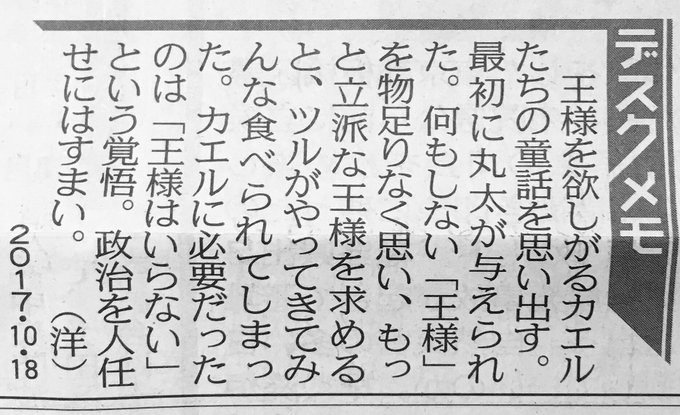 デスクメモ
王様を欲しがるカエル
たちの童話を思い出す。
最初に丸太が与えられ
た。何もしない「王様」
を物足りなく思い、もっ
と立派な王様を求める
と、ツルがやってきてみ
んな食べられてしまっ
た。カエルに必要だった
のは「王様はいらない」
という覚悟。政治を人任
せにはすまい。（洋）
2017・10・18